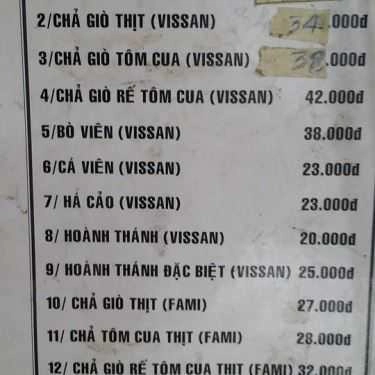 2/CHẢ GIÒ THỊT (VISSAN) 34.000đ
3/CHẢ GIÒ TÔM CUA (VISSAN) 38.000đ
4/CHẢ GIÒ RẾ TÔM CUA (VISSAN) 42.000đ
5/BÒ VIÊN (VISSAN) 38.000đ
6/CÁ VIÊN (VISSAN) 23.000đ
7/ HÁ CẢO (VISSAN) 23.000đ
8/ HOÀNH THÁNH (VISSAN) 20.000đ
9/ HOÀNH THÁNH ĐẶC BIỆT (VISSAN) 25.000đ
10/ CHẢ GIÒ THỊT (FAMI) 27.000đ
11/ CHẢ TÔM CUA THỊT (FAMI) 28.000đ
12/ CHẢ GIÒ RẾ TÔM CUA THỊT (FAMI) 32.000đ